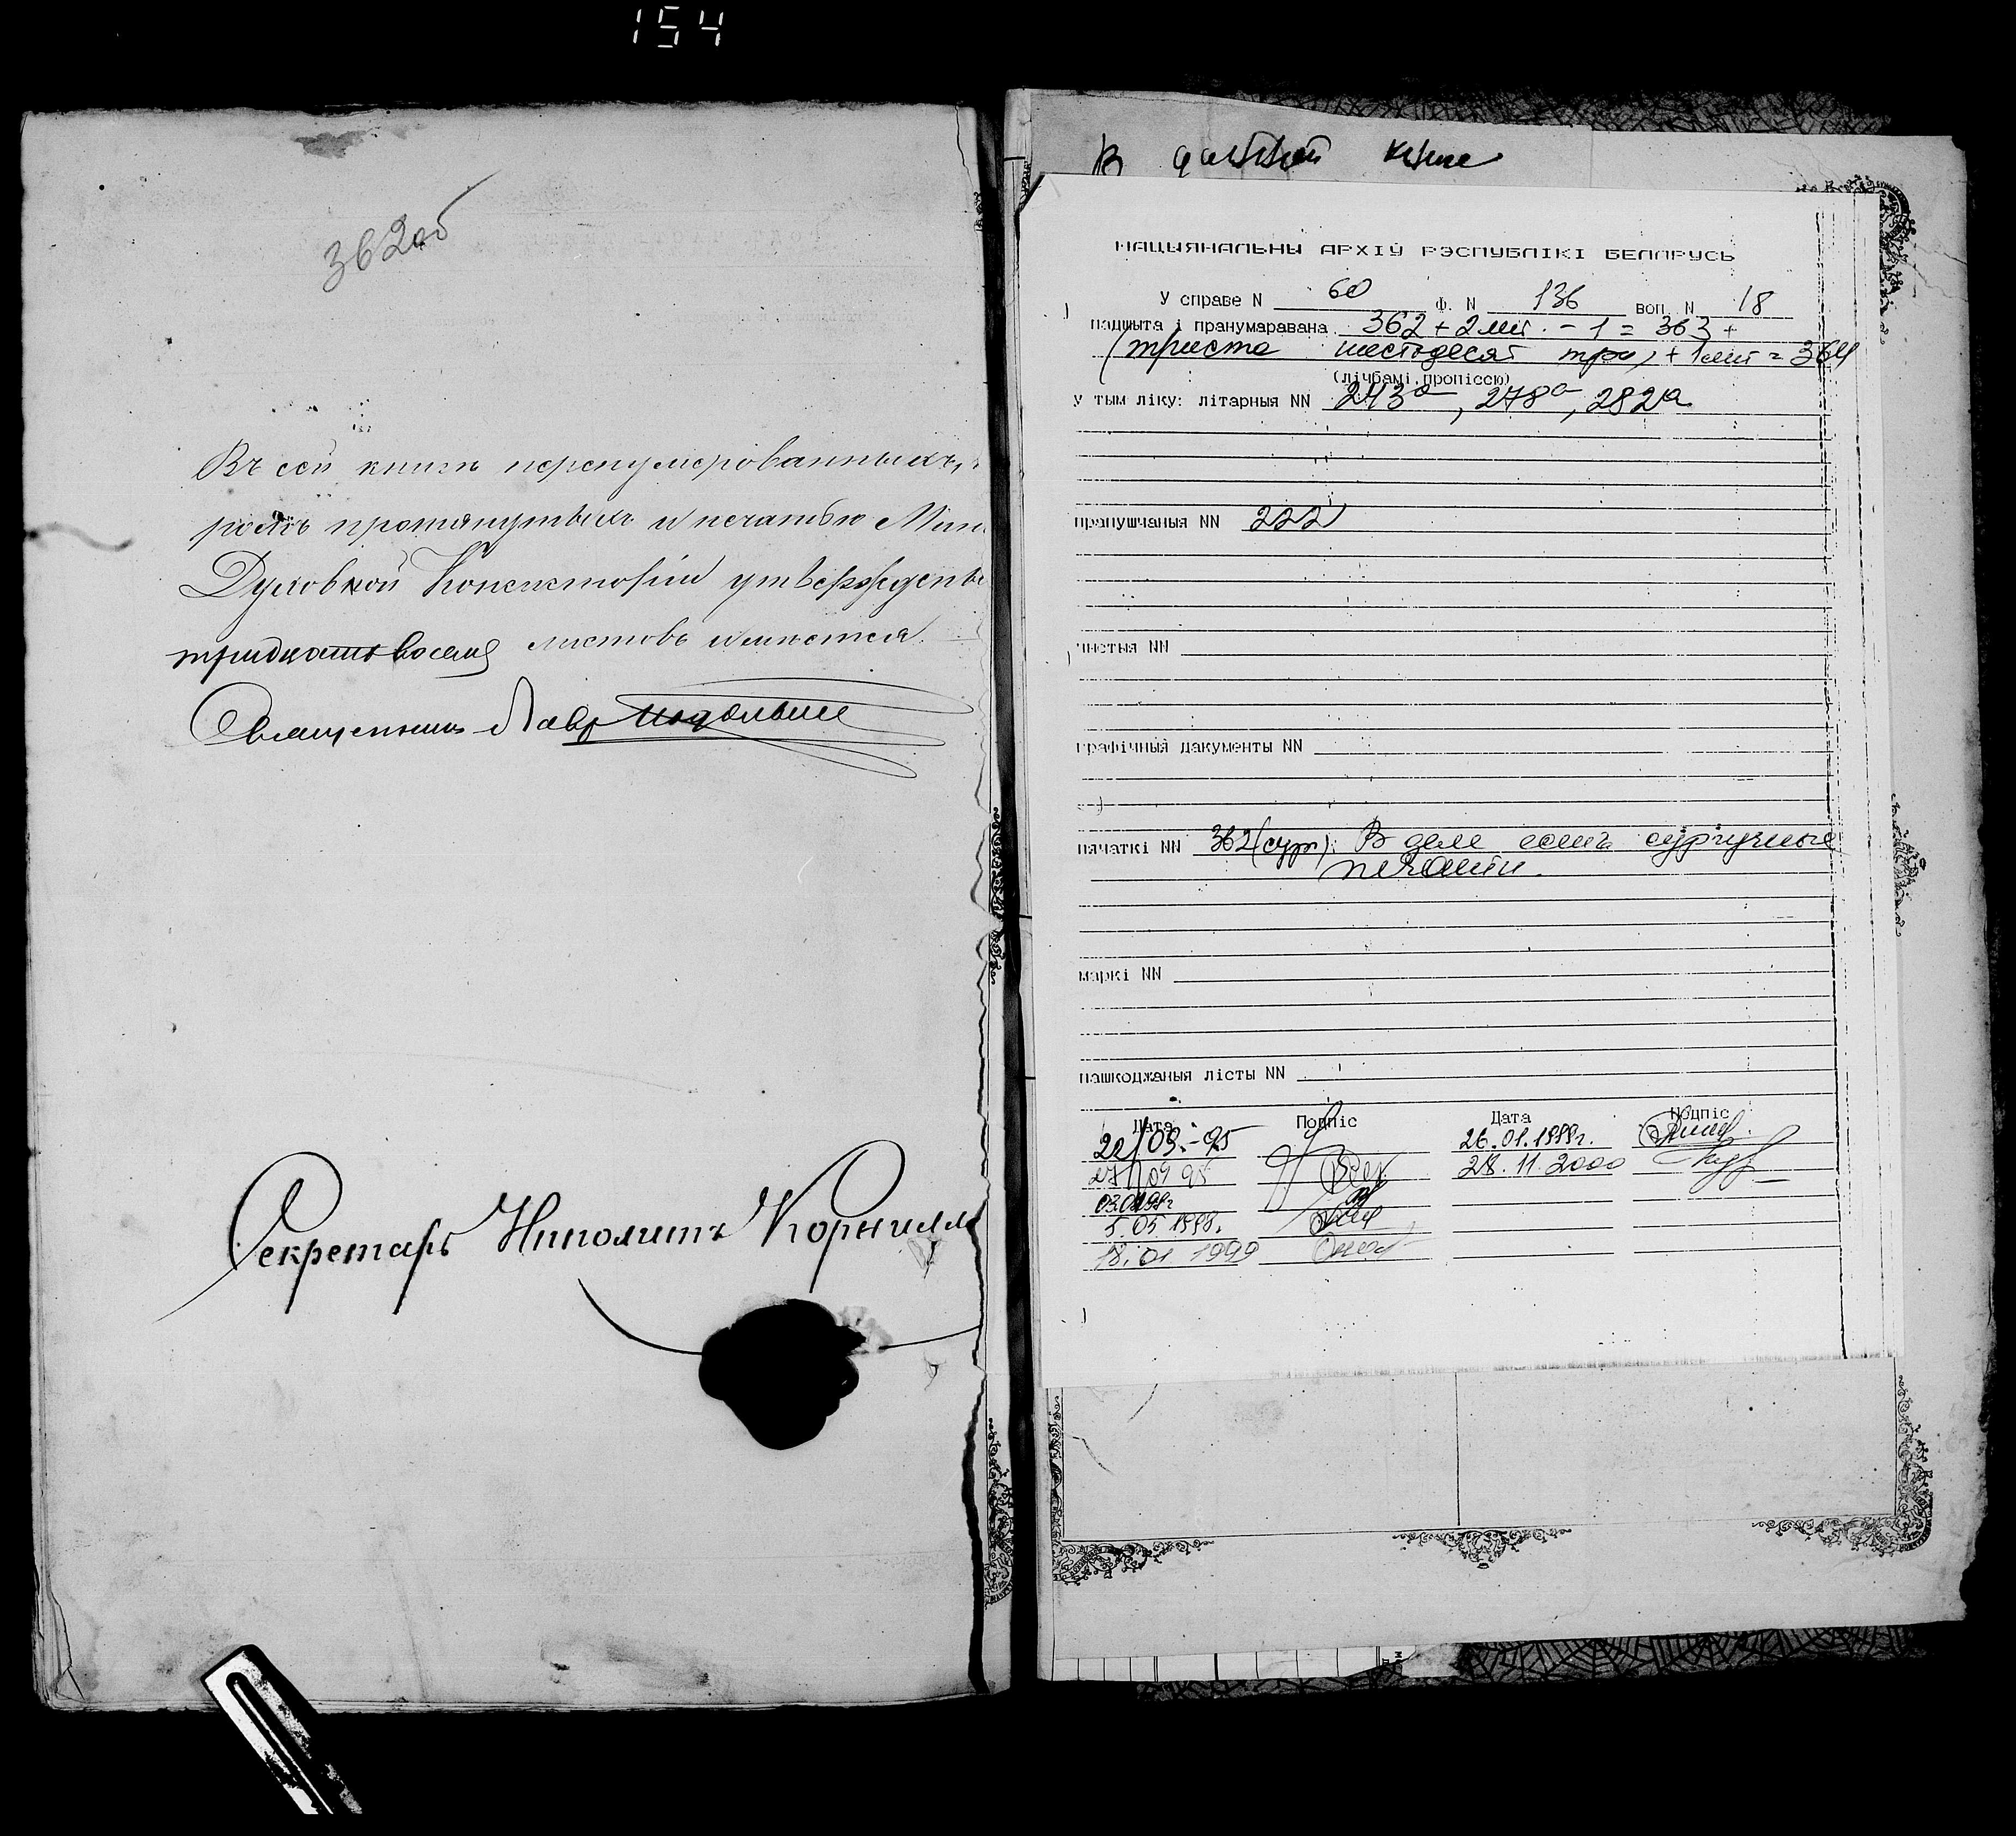 154
362об
Въ сей книгѣ перенумерованныхъ,
протянутыхъ и печатью Мин
Духовной Консисторіи утвержденн
тридцать восемь листовъ имѣется.
Священникъ Лавр
Секретарь Ипполитъ Корнилл
В данной книге
НАЦЫЯНАЛЬНЫ АРХІЎ РЭСПУБЛІКІ БЕЛАРУСЬ
У справе N 60 Ф. N 136 воп. N 18
падшыта і пранумаравана 362 + 2 лит. - 1 = 363 +
(триста шестьдесят три) + 1 лит = 364
(лічбамі, пропіссю)
у тым ліку: літарныя NN 243а, 278а, 282а
прапушчаныя NN 222
чыстыя NN
графічныя дакументы NN
пячаткі NN 362 (сург). В деле есть сургучные
печати.
маркі NN
пашкоджаныя лісты NN
Дата Подпіс Дата Подпіс
22/03.-95 26.01.1999г.
27/04 95 28.11.2000
5.05.1998.
18.01 1999